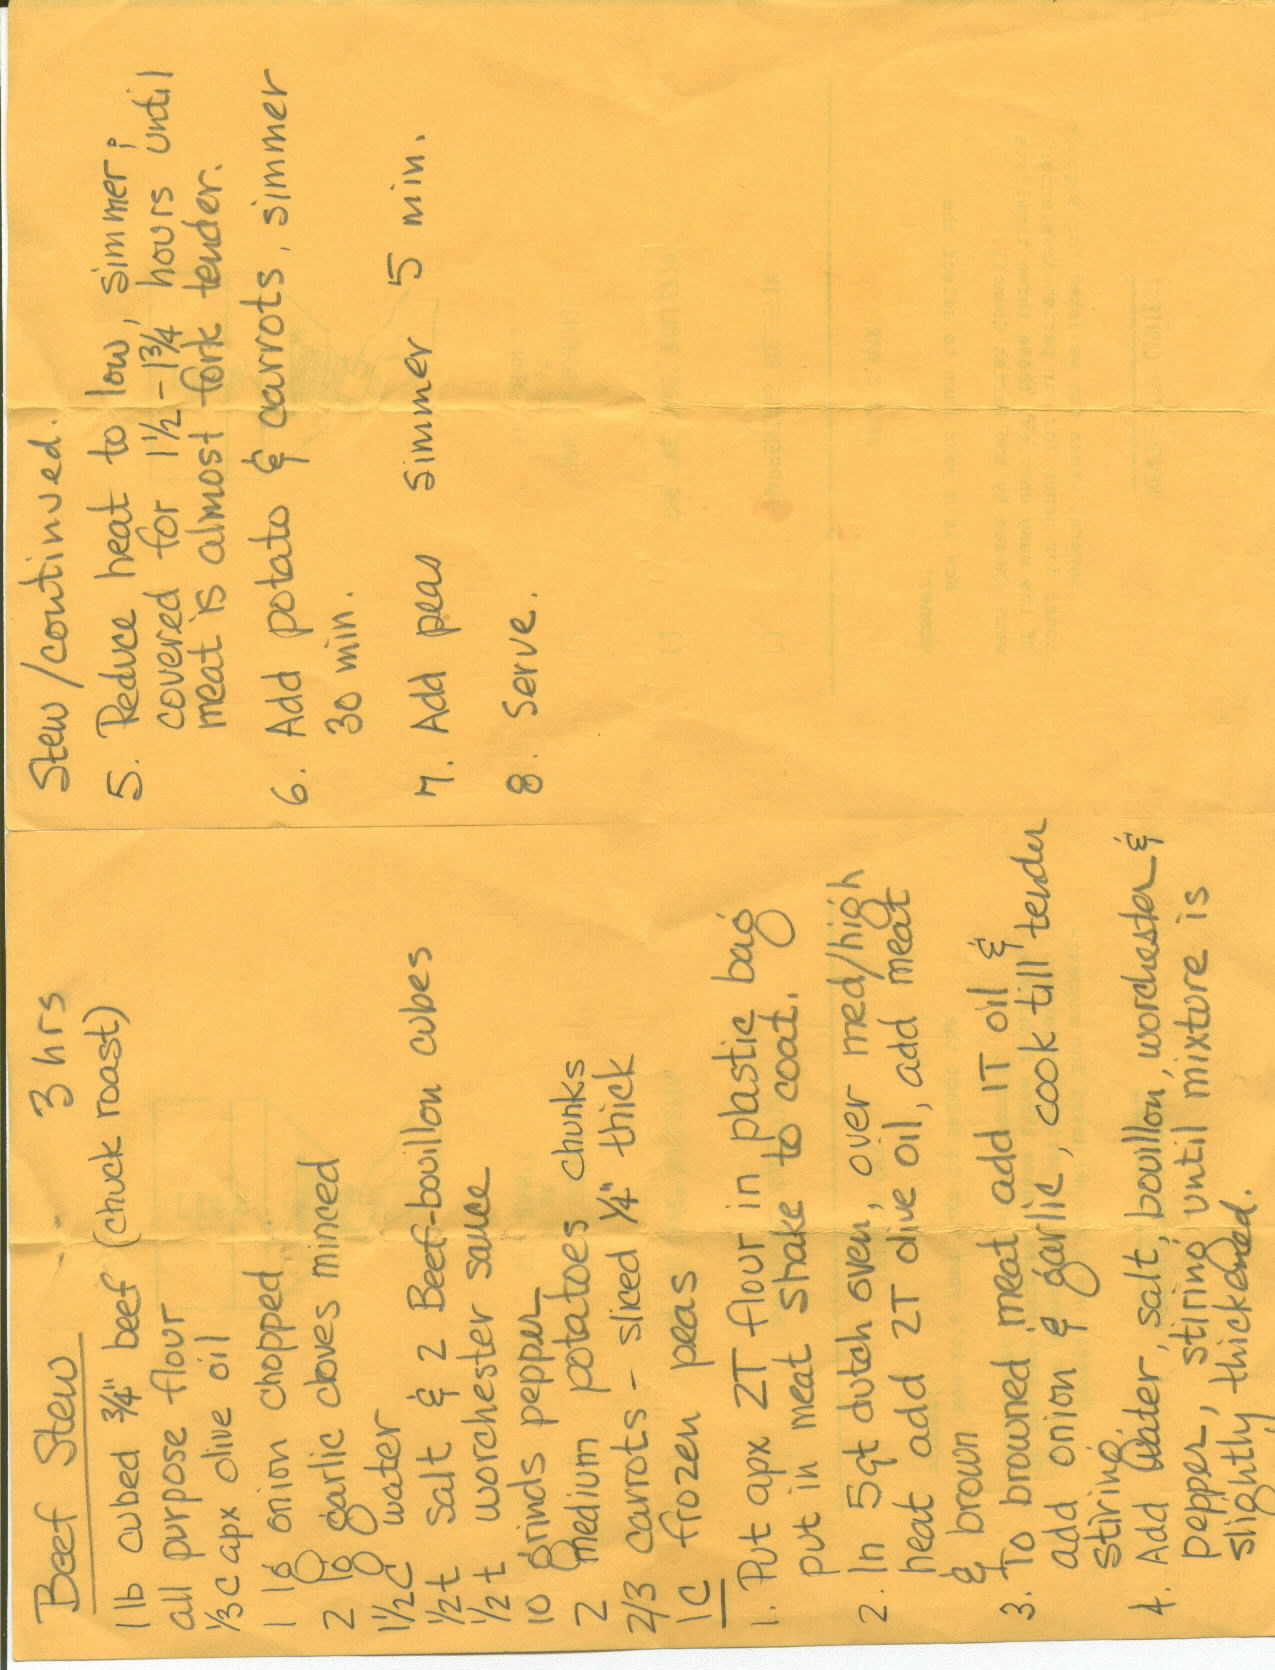 Beef Stew 3 hrs
1 lb cubed 3/4" beef (chuck roast)
all purpose flour
1/3 c apx olive oil
1 lg onion chopped
2 lg garlic cloves minced
1 1/2 C water
1/2 t salt & 2 Beef-bouillon cubes
1/2 t worchester sauce
10 grinds pepper
2 medium potatoes chunks
2/3 carrots - sliced 1/4" thick
1C frozen peas
1. Put apx 2T flour in plastic bag
put in meat shake to coat.
2. In 5qt dutch oven, over med/high
heat add 2T olive oil, add meat
& brown
3. To browned meat add 1T oil &
add onion & garlic, cook till tender
stiring.
4. Add water, salt, bouillon, worchester &
pepper, stiring until mixture is
slightly thickened.
Stew/continued.
5. Reduce heat to low, simmer;
covered for 1 1/2 - 1 3/4 hours until
meat is almost fork tender.
6. Add potato & carrots, simmer
30 min.
7. Add peas simmer 5 min.
8. Serve.